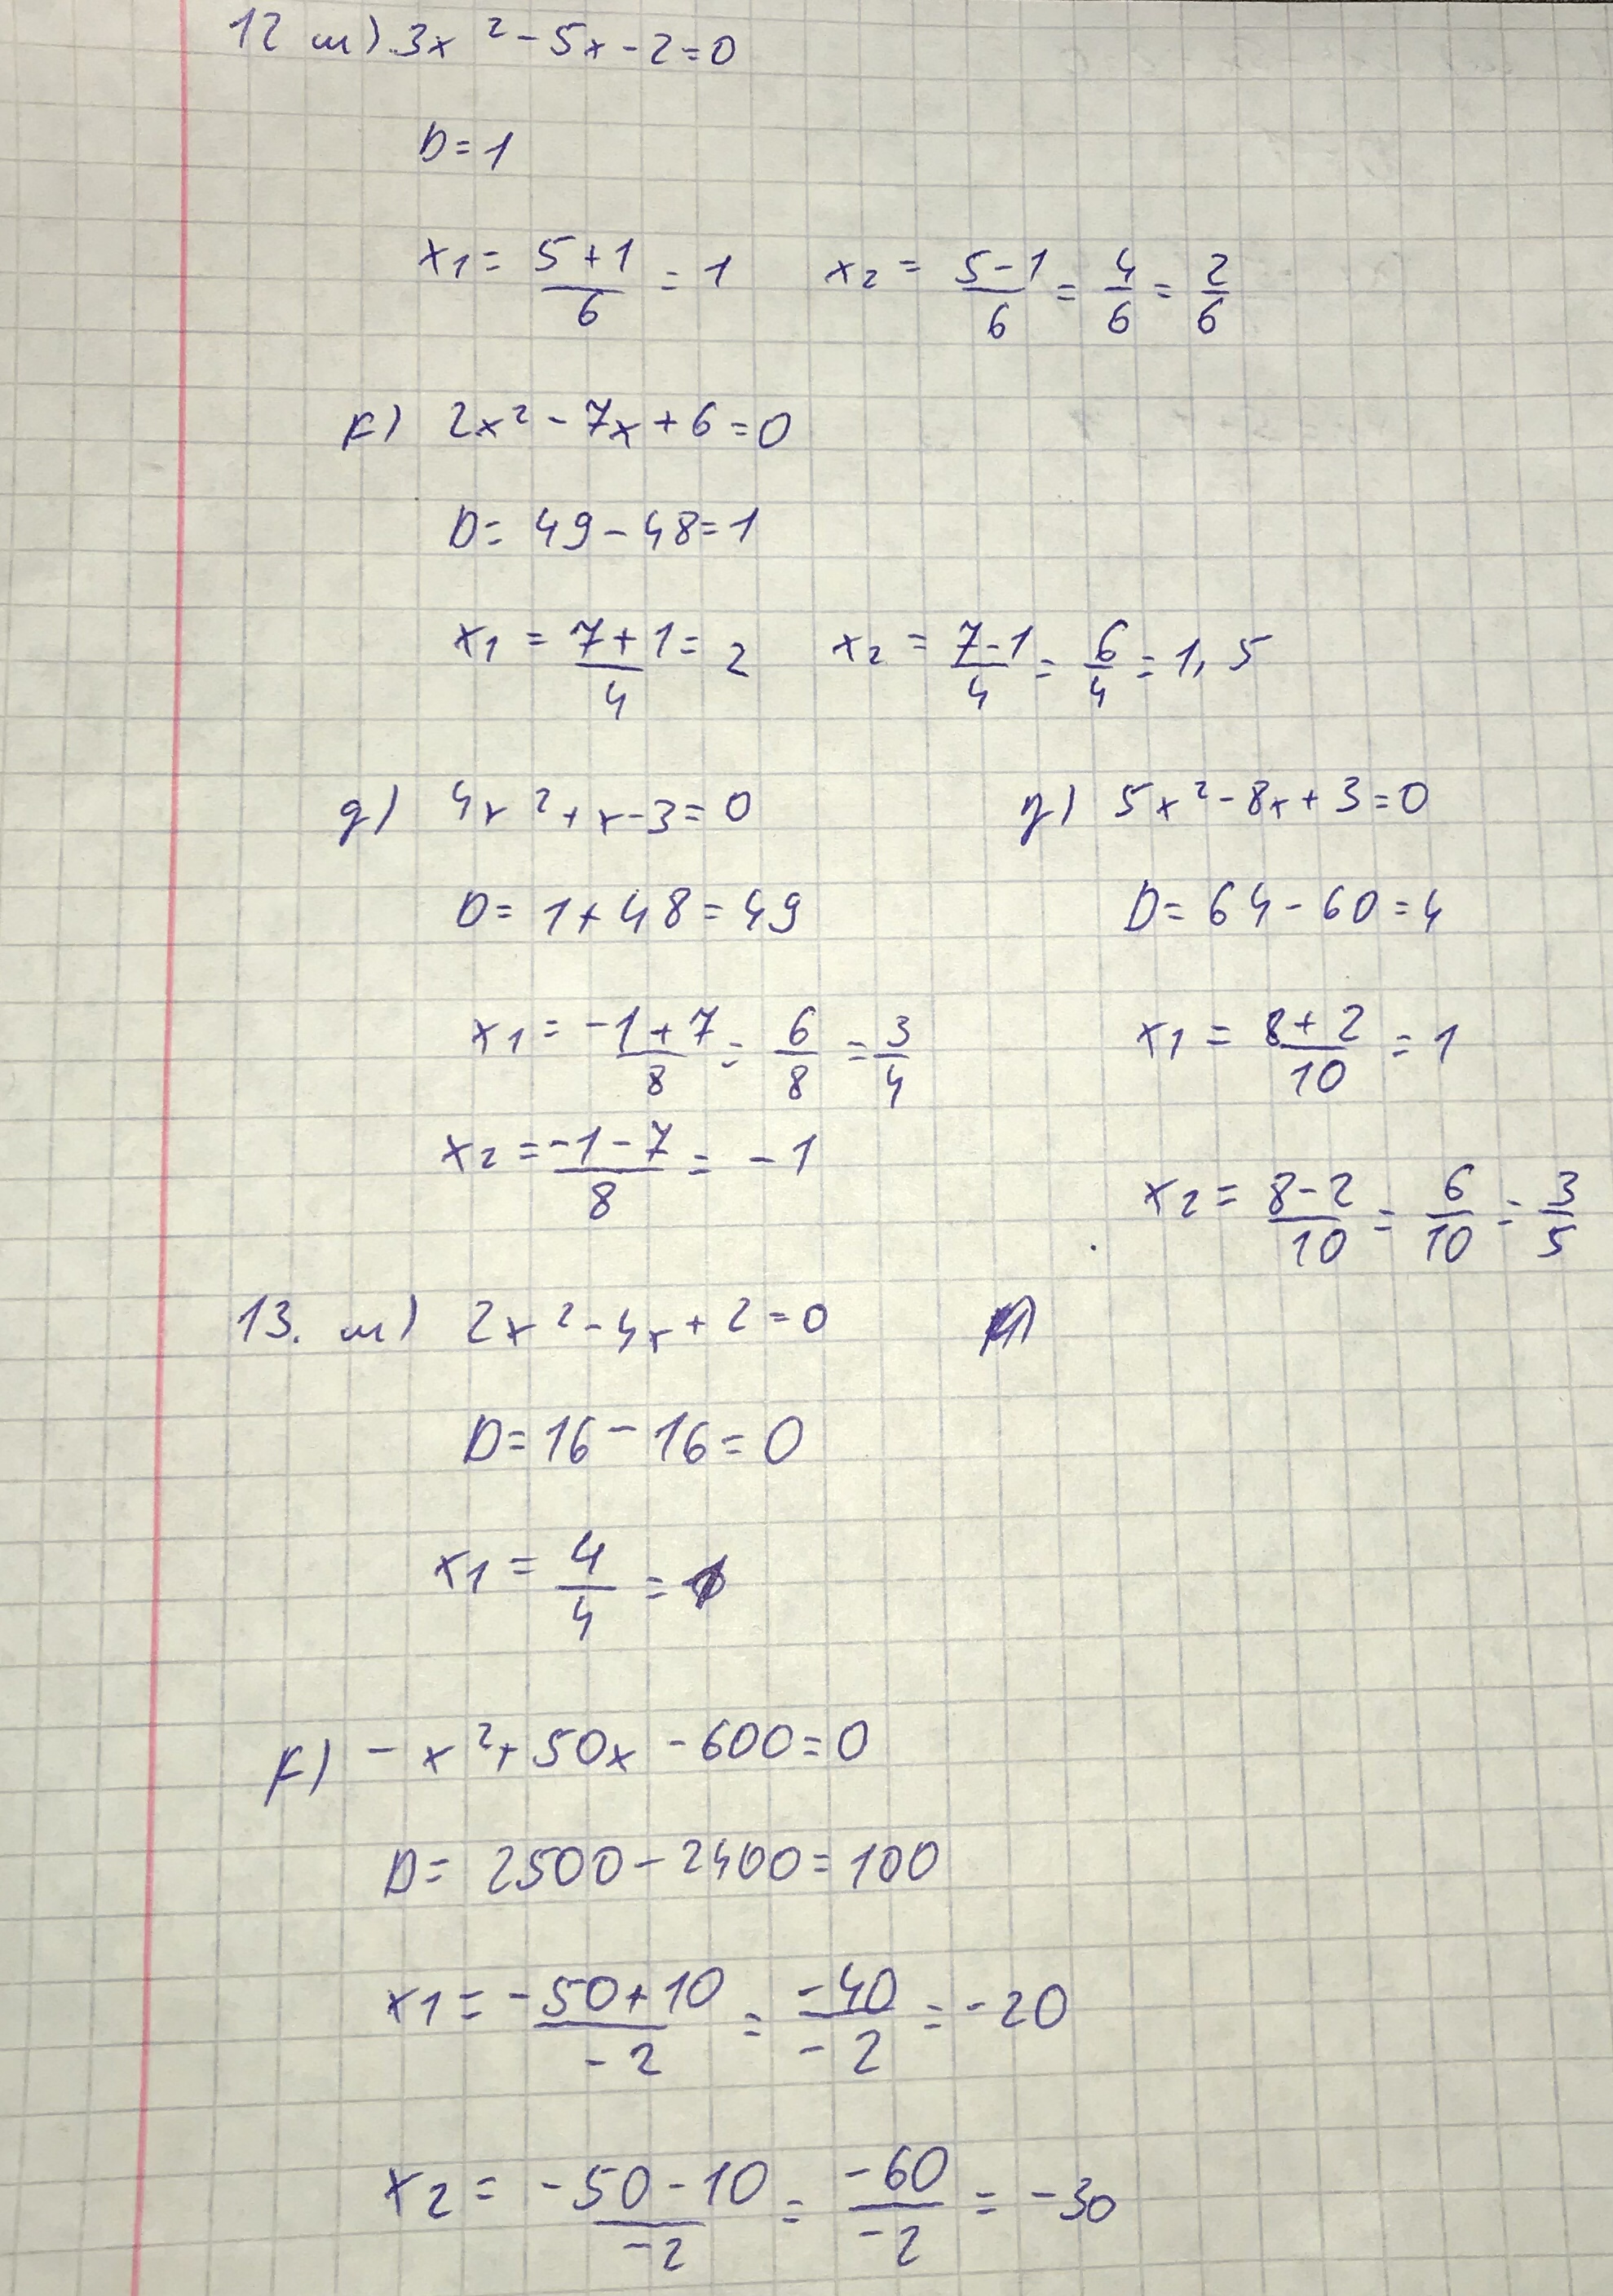 12 ա) 3x² - 5x - 2 = 0
D = 1
x₁ = (5 + 1)/6 = 1 x₂ = (5 - 1)/6 = 4/6 = 2/6
բ) 2x² - 7x + 6 = 0
D = 49 - 48 = 1
x₁ = (7 + 1)/4 = 2 x₂ = (7 - 1)/4 = 6/4 = 1,5
գ) 4x² + x - 3 = 0
D = 1 + 48 = 49
x₁ = (-1 + 7)/8 = 6/8 = 3/4
x₂ = (-1 - 7)/8 = -1
դ) 5x² - 8x + 3 = 0
D = 64 - 60 = 4
x₁ = (8 + 2)/10 = 1
x₂ = (8 - 2)/10 = 6/10 = 3/5
13. ա) 2x² - 4x + 2 = 0
D = 16 - 16 = 0
x₁ = 4/4 = 1
բ) - x² + 50x - 600 = 0
D = 2500 - 2400 = 100
x₁ = (-50 + 10)/-2 = -40/-2 = -20
x₂ = (-50 - 10)/-2 = -60/-2 = -30